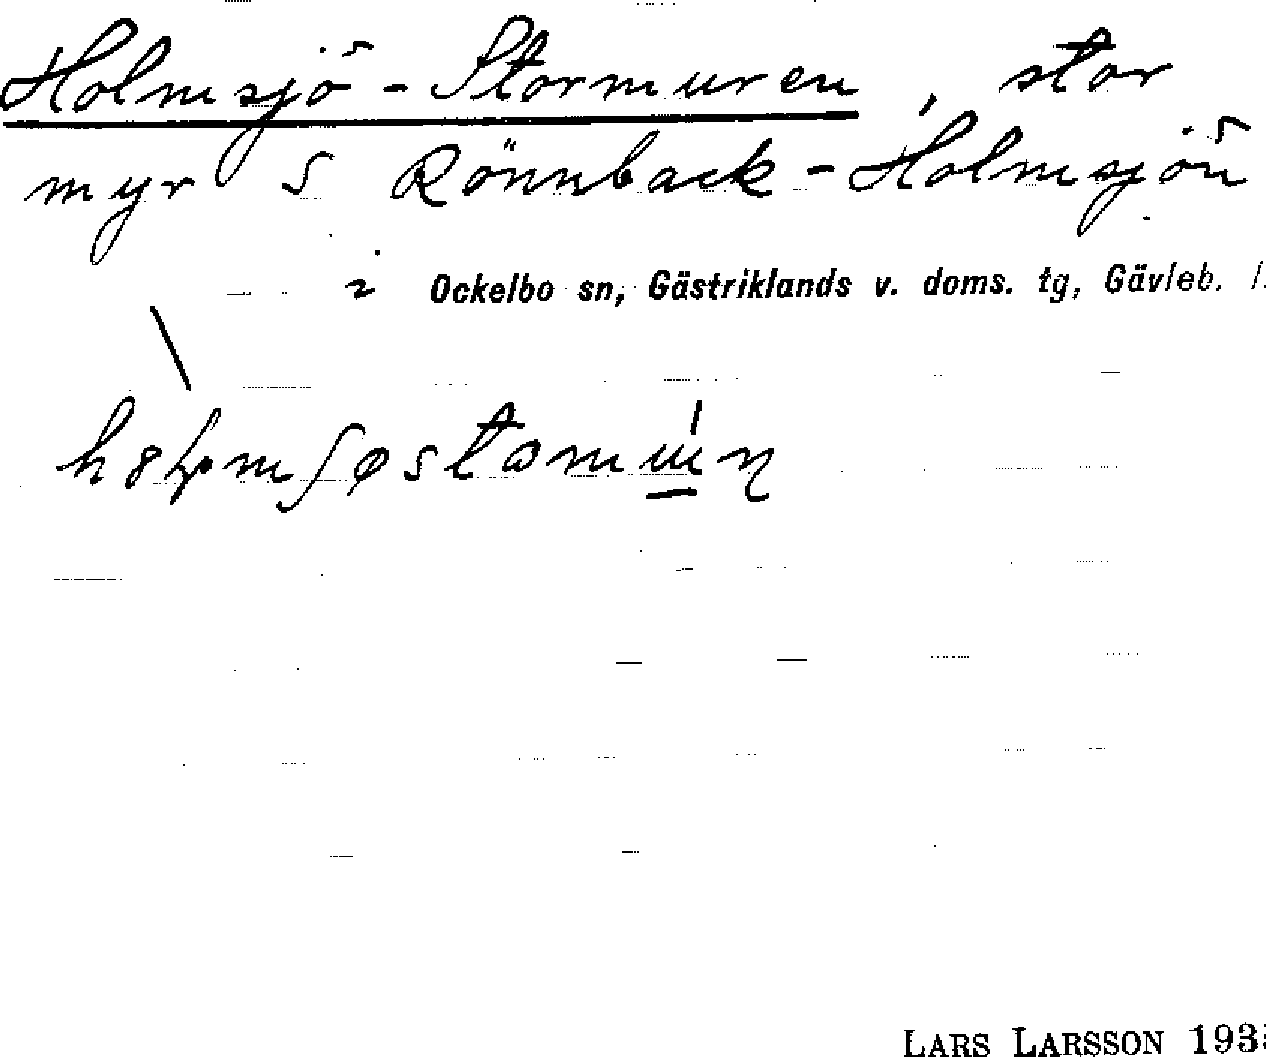 Holmsjö-Stormuren, stor
myr S Rönnback-Holmsjön
i Ockelbo sn, Gästriklands v. doms. tg, Gävleb. l.
LARS LARSSON 193